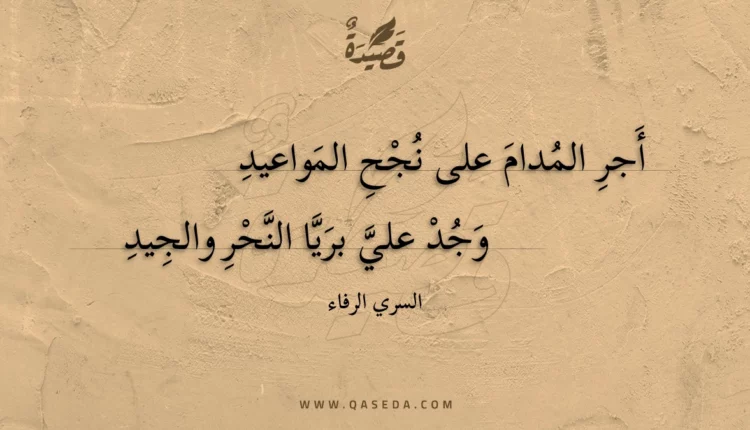 قَصِيدَةٌ
أَجرِ المُدامَ على نُجْحِ المَواعيدِ
وَجُدْ عليَّ برَيَّا النَّحْرِ والجِيدِ
السري الرفاء
WWW.QASEDA.COM